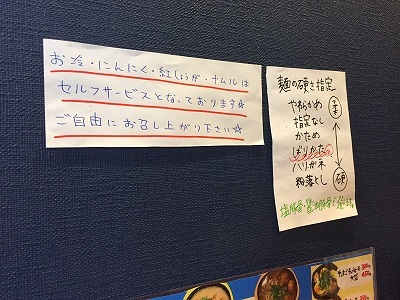 お冷・にんにく・紅しょうが・ナムルは
セルフサービスとなっております☆
ご自由にお召し上がり下さい☆
麺の硬さ指定
やわらかめ
指定なし
かため
ばりかた
ハリガネ
粉落とし
柔
硬